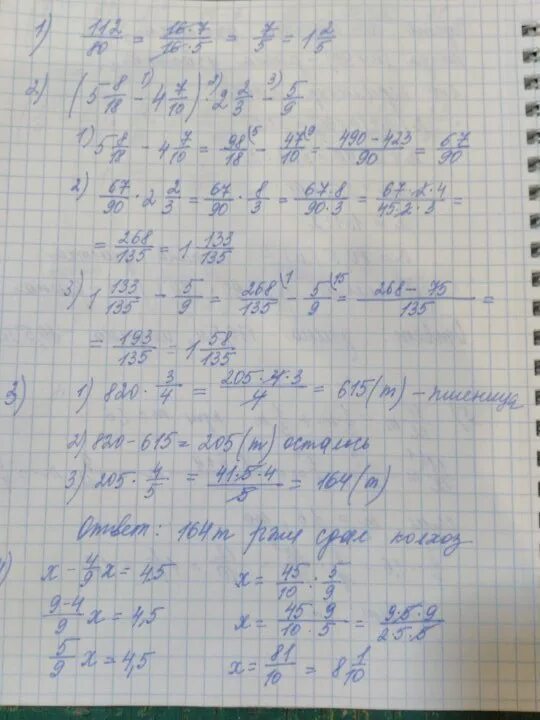 1) 112/80 = 16·7/16·5 = 7/5 = 1 2/5
2) (5 8/18 - 4 7/10) · 2 2/3 - 5/9
1) 5 8/18 - 4 7/10 = 98/18 - 47/10 = 490-423/90 = 67/90
2) 67/90 · 2 2/3 = 67/90 · 8/3 = 67·8/90·3 = 67·2·4/45·2·3 =
= 268/135 = 1 133/135
3) 1 133/135 - 5/9 = 268/135 - 5/9 = 268-75/135 =
= 193/135 = 1 58/135
3) 1) 820 · 3/4 = 205·4·3/4 = 615(т) - пшеница
2) 820-615 = 205(т) осталось
3) 205 · 4/5 = 41·5·4/5 = 164(т)
Ответ: 164т ржи сдал колхоз
4) x - 4/9 x = 4,5
9-4/9 x = 4,5
5/9 x = 4,5
x = 45/10 : 5/9
x = 45·9/10·5 = 9·5·9/2·5·5
x = 81/10 = 8 1/10